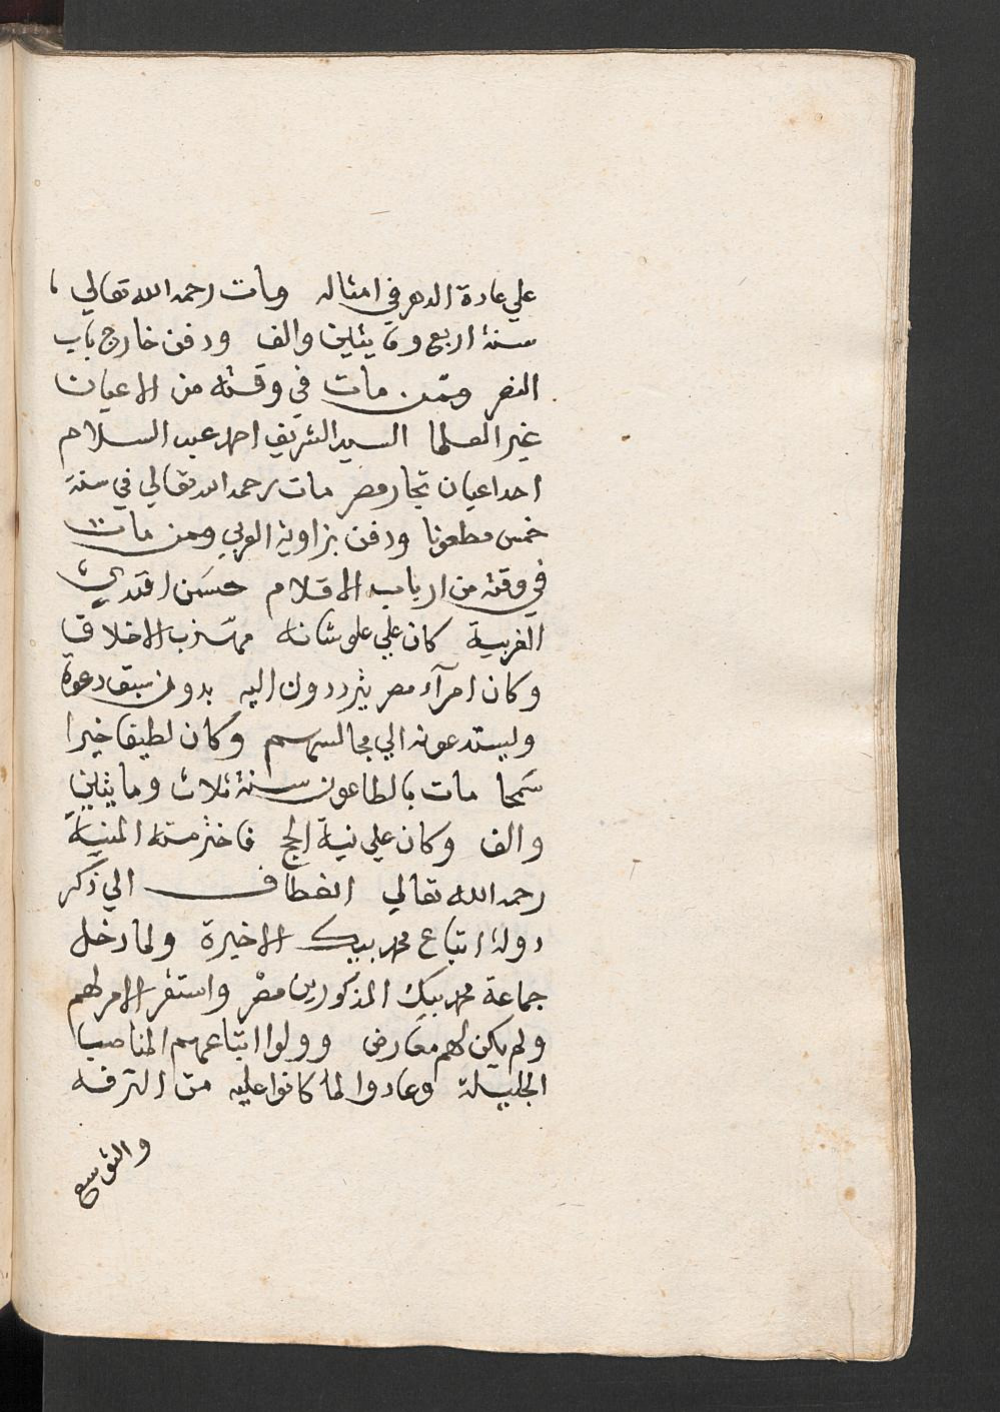 علي عادة الدهر في امثاله ومات رحمه الله تعالي
سنة اربع ومايتين والف ودفن خارج باب
النصر وممن مات في وقته من الاعيان
غير العلما السيد الشريف احمد عبد السلام
احد اعيان تجار مصر مات رحمه الله تعالي في سنة
خمس مطعونا ودفن بزاوية العربي وممن مات
في وقته من ارباب الاقلام حسن افندي
الغربية كان علي علو شانه مهذب الاخلاق
وكان امرآء مصر يترددون اليه بدون سبق دعوة
وليستدعونه الي مجالسهم وكان لطيفا خيرا
سمحا مات بالطاعون سنة ثلاث ومايتين
والف وكان علي نية الحج فاخترمته المنية
رحمه الله تعالي انعطاف الي ذكر
دولة اتباع محمد بيك الاخيرة ولما دخل
جماعة محمد بيك المذكورين مصر واستقر الامر لهم
ولم يكن لهم معارض وولوا اتباعهم المناصب
الجليلة وعادوا لما كانوا عليه من الترفه
والتوسع